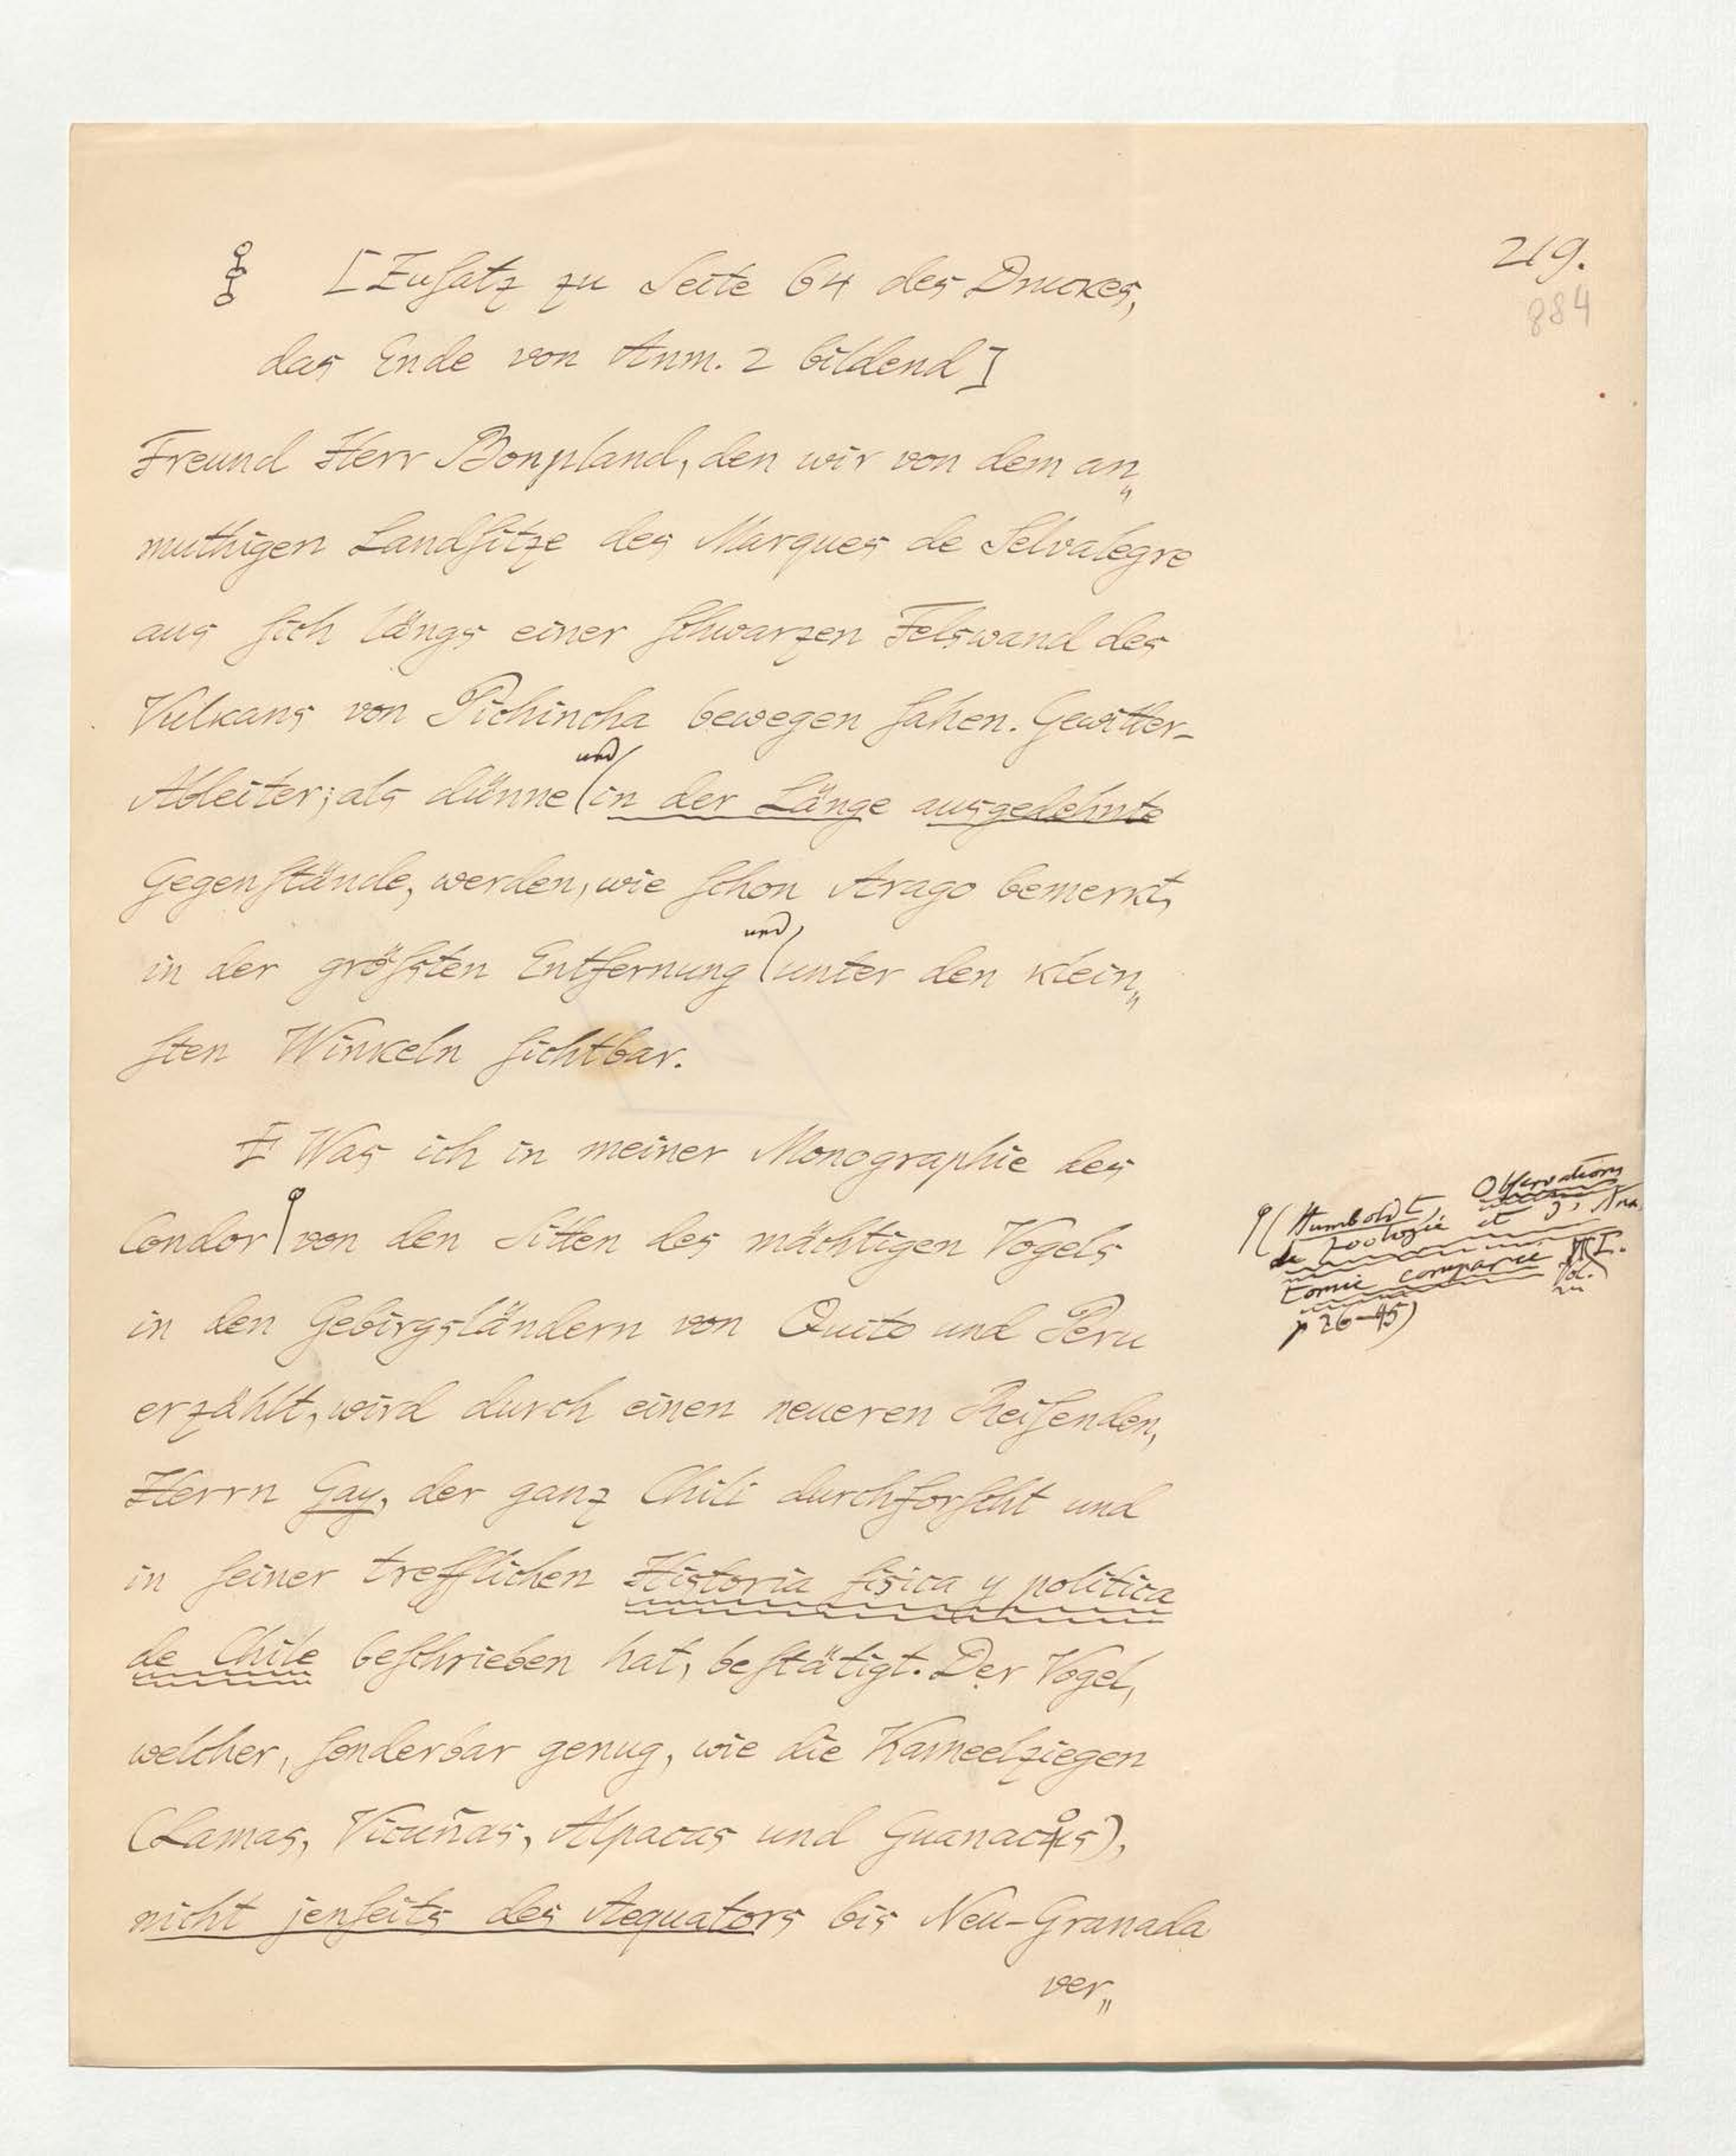 219.
884
[Zusatz zu Seite 64 des Druckes,
das Ende von Anm. 2 bildend]
Freund Herr Bonpland, den wir von dem an„
muthigen Landsitze des Marques de Selvalegre
aus sich längs einer schwarzen Felswand des
Vulkans von Pichincha bewegen sahen. Gewitter-
und
Ableiter, als dünne in der Länge ausgedehnte
Gegenstände, werden, wie schon Arago bemerkt,
und
in der größten Entfernung unter den klein„
sten Winkeln sichtbar.
Was ich in meiner Monographie des
Condor von den Sitten des mächtigen Vogels
in den Gebirgsländern von Quito und Peru
erzählt, wird durch einen neueren Reisenden,
Herrn Gay, der ganz Chili durchforscht und
in seiner trefflichen Historia fisica y politica
de Chile beschrieben hat, bestätigt. Der Vogel,
welcher, sonderbar genug, wie die Kameelziegen
(Lamas, Vicuñas, Alpacas und Guanacos),
nicht jenseits des Aequators bis Neu-Granada
ver„
(Humboldt, Observations
de Zoologie et d'Ana
tomie comparée Vol. I.
p 26–45)